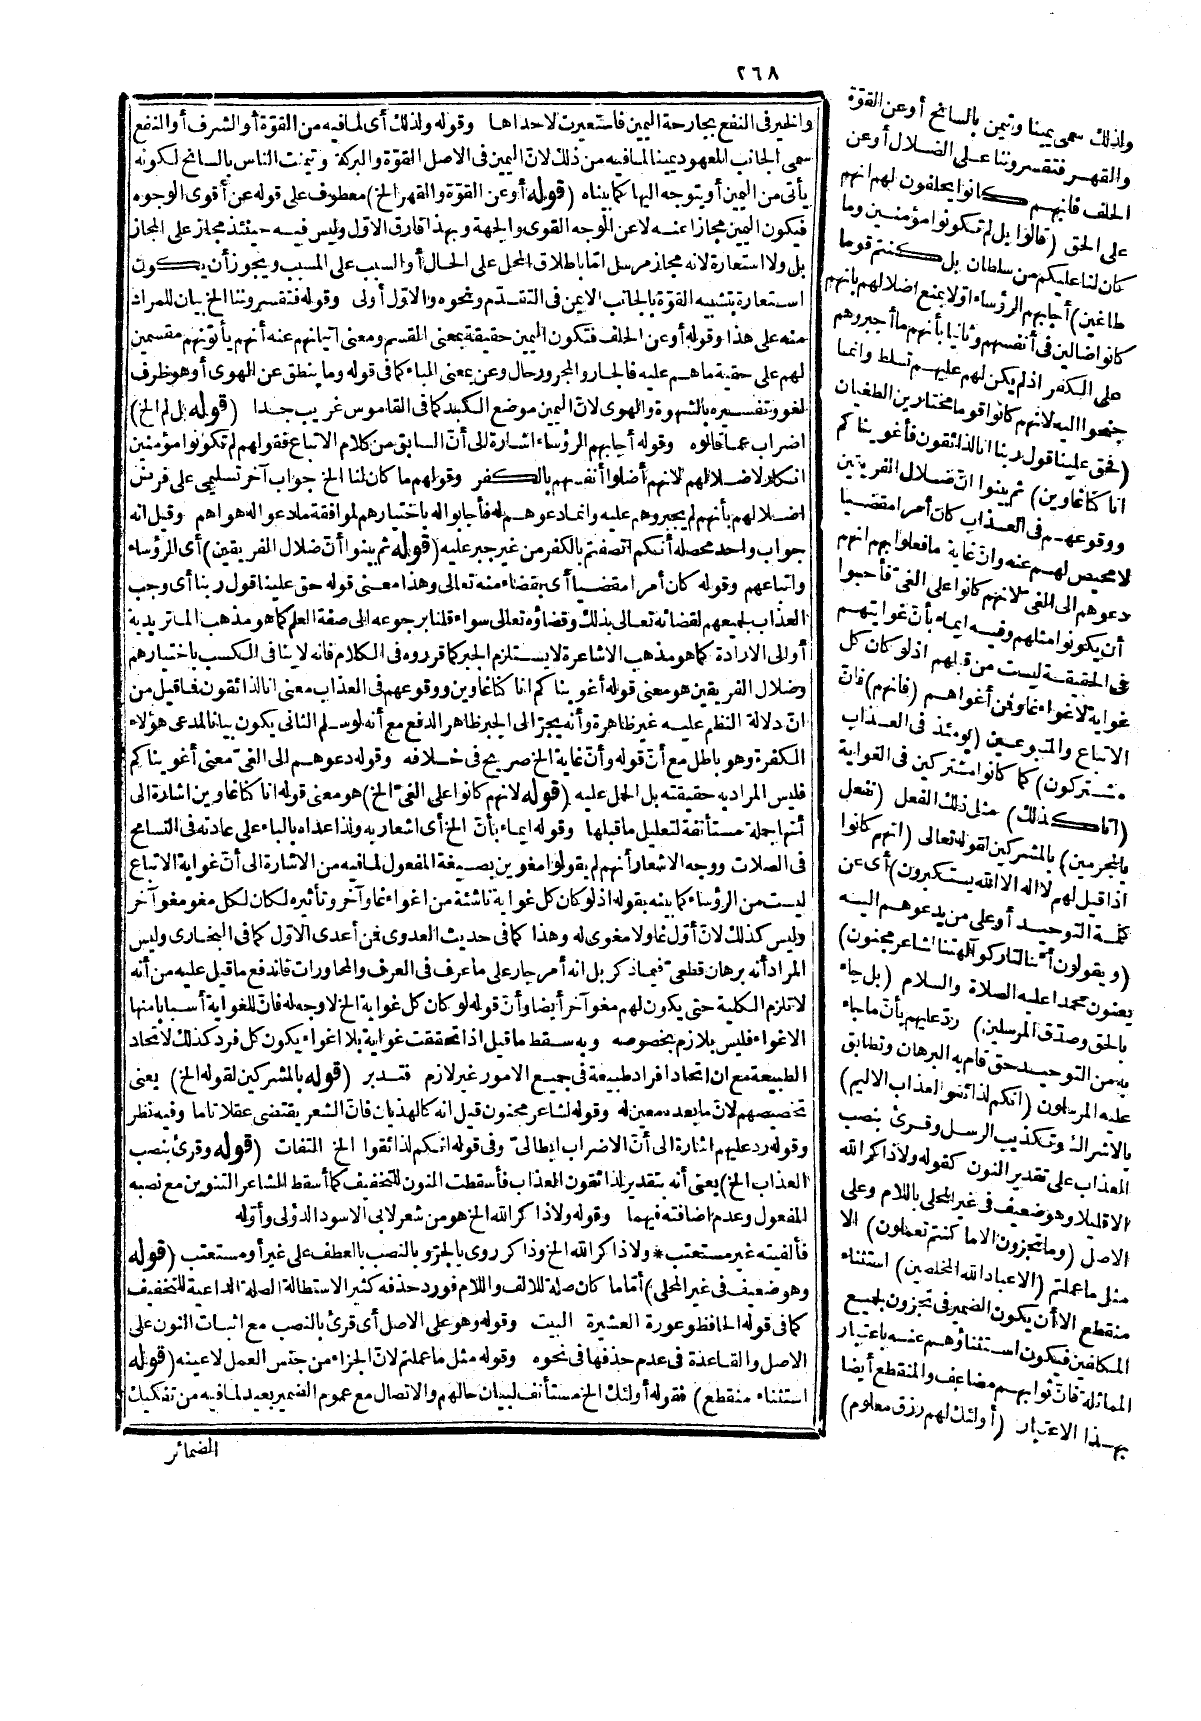 ٢٦٨
والخير في النفع بجارحة اليمين فاستعيرت لاحداها وقوله ولذلك أي لما فيه من القوّة أو الشرف أو النفع
سمى الجانب المعهود يمينا لما فيه من ذلك لانّ اليمين في الاصل القوّة والبركة وتيمنت الناس بالسانح لكونه
يأتي من اليمين أو يتوجه اليها كما بيناه (قوله أو عن القوّة والقهر الخ) معطوف على قوله عن أقوى الوجوه
فيكون اليمين مجازا عنه لا عن الوجه القوى والجهة وبهذا فارق الاوّل وليس فيه حينئذ مجاز على المجاز
بل ولا استعارة لانه مجاز مرسل امّا باطلاق المحل على الحال أو السبب على المسبب ويجوز أن يكون
استعارة بتشبيه القوّة بالجانب الايمن في التقدّم ونحوه والاوّل أولى وقوله فتقسروننا الخ بيان للمراد
منه على هذا وقوله أو عن الحلف فتكون اليمين حقيقة بمعنى القسم ومعنى اتيانهم عنه أنهم يأتونهم مقسمين
لهم على حقية ماهم عليه فالجار والمجرور حال وعن بمعنى الباء كما في قوله وما ينطق عن الهوى أو هو ظرف
لغو وتفسيره بالشهوة والهوى لانّ اليمين موضع الكبد كما في القاموس غريب جدا (قوله بل لم الخ)
اضراب عما قالوه وقوله أجابهم الرؤساء اشارة الى أنّ السابق من كلام الاتباع فقولهم لم تكونوا مؤمنين
انكار لاضلالهم لانهم أضلوا أنفسهم بالكفر وقولهم ما كان لنا الخ جواب آخر تسليمي على فرض
اضلالهم بأنهم لم يجبروهم عليه وانما دعوهم له فأجابوا له باختيارهم لموافقة ما دعوا له هواهم وقيل انه
جواب واحد محصله أنكم اتصفتم بالكفر من غير جبر عليه (قوله ثم بينوا أنّ ضلال الفريقين) أي الرؤساء
واتباعهم وقوله كان أمرا مقضيا أي بقضاء منه تعالى وهذا معنى قوله حق علينا قول ربنا أي وجب
العذاب لجميعهم لقضائه تعالى بذلك وقضاؤه تعالى سواء قلنا برجوعه الى صفة العلم كما هو مذهب الماتريدية
أو الى الارادة كما هو مذهب الاشاعرة لا يستلزم الجبر كما قرروه في الكلام فانه لا ينافي الكسب باختيارهم
وضلال الفريقين هو معنى قوله أغويناكم انا كنا غاوين ووقوعهم في العذاب معنى انا لذائقون فما قيل من
انّ دلالة النظم عليه غير ظاهرة وأنه يجرّ الى الجبر ظاهر الدفع مع أنه لو سلم الثاني يكون بيانا لمدعى هؤلاء
الكفرة وهو باطل مع أنّ قوله وأنّ غاية الخ صريح في خلافه وقوله دعوهم الى الغيّ معنى أغويناكم
فليس المراد به حقيقته بل الحمل عليه (قوله لانهم كانوا على الغيّ الخ) هو معنى قوله انا كنا غاوين اشارة الى
أنها جملة مستأنفة لتعليل ما قبلها وقوله ايماء بأنّ الخ أي اشعار به ولذا عداه بالباء على عادته في التسامح
في الصلات ووجه الاشعار أنهم لم يقولوا مغوين بصيغة المفعول لما فيه من الاشارة الى أنّ غواية الاتباع
ليست من الرؤساء كما بينه بقوله اذ لو كان كل غواية ناشئة من اغواء غاو آخر وتأثيره لكان لكل مغو مغو آخر
وليس كذلك لانّ أوّل غاو لا مغوى له وهذا كما في حديث العدوى فمن أعدى الاوّل كما في البخارى وليس
المراد أنه برهان قطعيّ فيما ذكر بل انه أمر جار على ما عرف في العرف والمحاورات فاندفع ما قيل عليه من أنه
لا تلزم الكلية حتى يكون لهم مغو آخر أيضا وأنّ قوله لو كان كل غواية الخ لا وجه له فانّ للغواية أسبابا منها
الاغواء فليس بلازم بخصوصه وبه سقط ما قيل اذا تحققت غواية بلا اغواء يكون كل فرد كذلك لاتحاد
الطبيعة مع ان اتحاد افراد طبيعة في جميع الامور غير لازم فتدبر (قوله بالمشركين لقوله الخ) يعنى
تخصيصهم لانّ ما بعده معين له وقوله لشاعر مجنون قيل انه كالهذيان فانّ الشعر يقتضى عقلا تاما وفيه نظر
وقوله رد عليهم اشارة الى أنّ الاضراب ابطاليّ وفي قوله انكم لذائقوا الخ التفات (قوله وقرئ بنصب
العذاب الخ) يعنى أنه بتقدير لذائقون العذاب فأسقطت النون للتخفيف كما أسقط الشاعر التنوين مع نصبه
المفعول وعدم اضافته فيهما وقوله ولا ذاكر الله الخ هو من شعر لابي الاسود الدؤلى وأوّله
فألفيته غير مستعتب * ولا ذاكر الله الخ وذاكر روى بالجرّ وبالنصب بالعطف على غير أو مستعتب (قوله
وهو ضعيف في غير المحلى) أمّا ما كان صلة للالف واللام فورد حذفه كثير الاستطالة الصلة الداعية للتخفيف
كما في قوله الحافظو عورة العشيرة البيت وقوله وهو على الاصل أي قرئ بالنصب مع اثبات النون على
الاصل والقاعدة في عدم حذفها في نحوه وقوله مثل ما عملتم لانّ الجزاء من جنس العمل لا عينه (قوله
استثناء منقطع) فقوله أولئك الخ مستأنف لبيان حالهم والاتصال مع عموم الضمير بعيد لما فيه من تفكيك
الضمائر
ولذلك سمى يمينا وتيمن بالسانح أو عن القوّة
والقهر فتقسروننا على الضلال أو عن
الحلف فانهم كانوا يحلفون لهم انهم
على الحق (قالوا بل لم تكونوا مؤمنين وما
كان لنا عليكم من سلطان بل كنتم قوما
طاغين) أجابهم الرؤساء اوّلا بمنع اضلالهم بأنهم
كانوا ضالين في أنفسهم وثانيا بأنهم ما أجبروهم
على الكفر اذ لم يكن لهم عليهم تسلط وانما
جنحوا اليه لانهم كانوا قوما مختارين الطغيان
(فحق علينا قول ربنا انا لذائقون فأغويناكم
انا كنا غاوين) ثم بينوا انّ ضلال الفريقين
ووقوعهم في العذاب كان أمرا مقضيا
لا محيص لهم عنه وانّ غاية ما فعلوا بهم انهم
دعوهم الى الغيّ لانهم كانوا على الغيّ فأحبوا
أن يكونوا مثلهم وفيه ايماء بأنّ غوايتهم
في الحقيقة ليست من قبلهم اذ لو كان كل
غواية لاغواء غاو فمن أغواهم (فانهم) فانّ
الاتباع والمتبوعين (يومئذ في العذاب
مشتركون) كما كانوا مشتركين في الغواية
(انا كذلك) مثل ذلك الفعل (نفعل
بالمجرمين) بالمشركين لقوله تعالى (انهم كانوا
اذا قيل لهم لا اله الا الله يستكبرون) أي عن
كلمة التوحيد أو على من يدعوهم اليه
(ويقولون أئنا لتاركو آلهتنا لشاعر مجنون)
يعنون محمدا عليه الصلاة والسلام (بل جاء
بالحق وصدّق المرسلين) ردّ عليهم بأنّ ما جاء
به من التوحيد حق قام به البرهان وتطابق
عليه المرسلون (انكم لذائقوا العذاب الاليم)
بالاشراك وتكذيب الرسل وقرئ بنصب
العذاب على تقدير النون كقوله ولا ذاكر الله
الا قليلا وهو ضعيف في غير المحلى باللام وعلى
الاصل (وما تجزون الا ما كنتم تعملون) الا
مثل ما عملتم (الا عباد الله المخلصين) استثناء
منقطع الا أن يكون الضمير في تجزون لجميع
المكلفين فيكون استثناؤهم عنه باعتبار
المماثلة فانّ ثوابهم مضاعف والمنقطع أيضا
بهذا الاعتبار (أولئك لهم رزق معلوم)